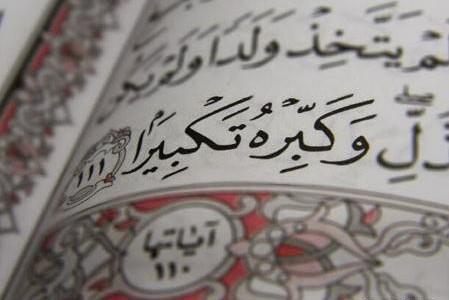 لَمْ يَتَّخِذْ وَلَدًا وَلَمْ يَكُن
ٱلذُّلِّ ۖ وَكَبِّرْهُ تَكْبِيرًۢا ١١١
آيَاتها
١١٠